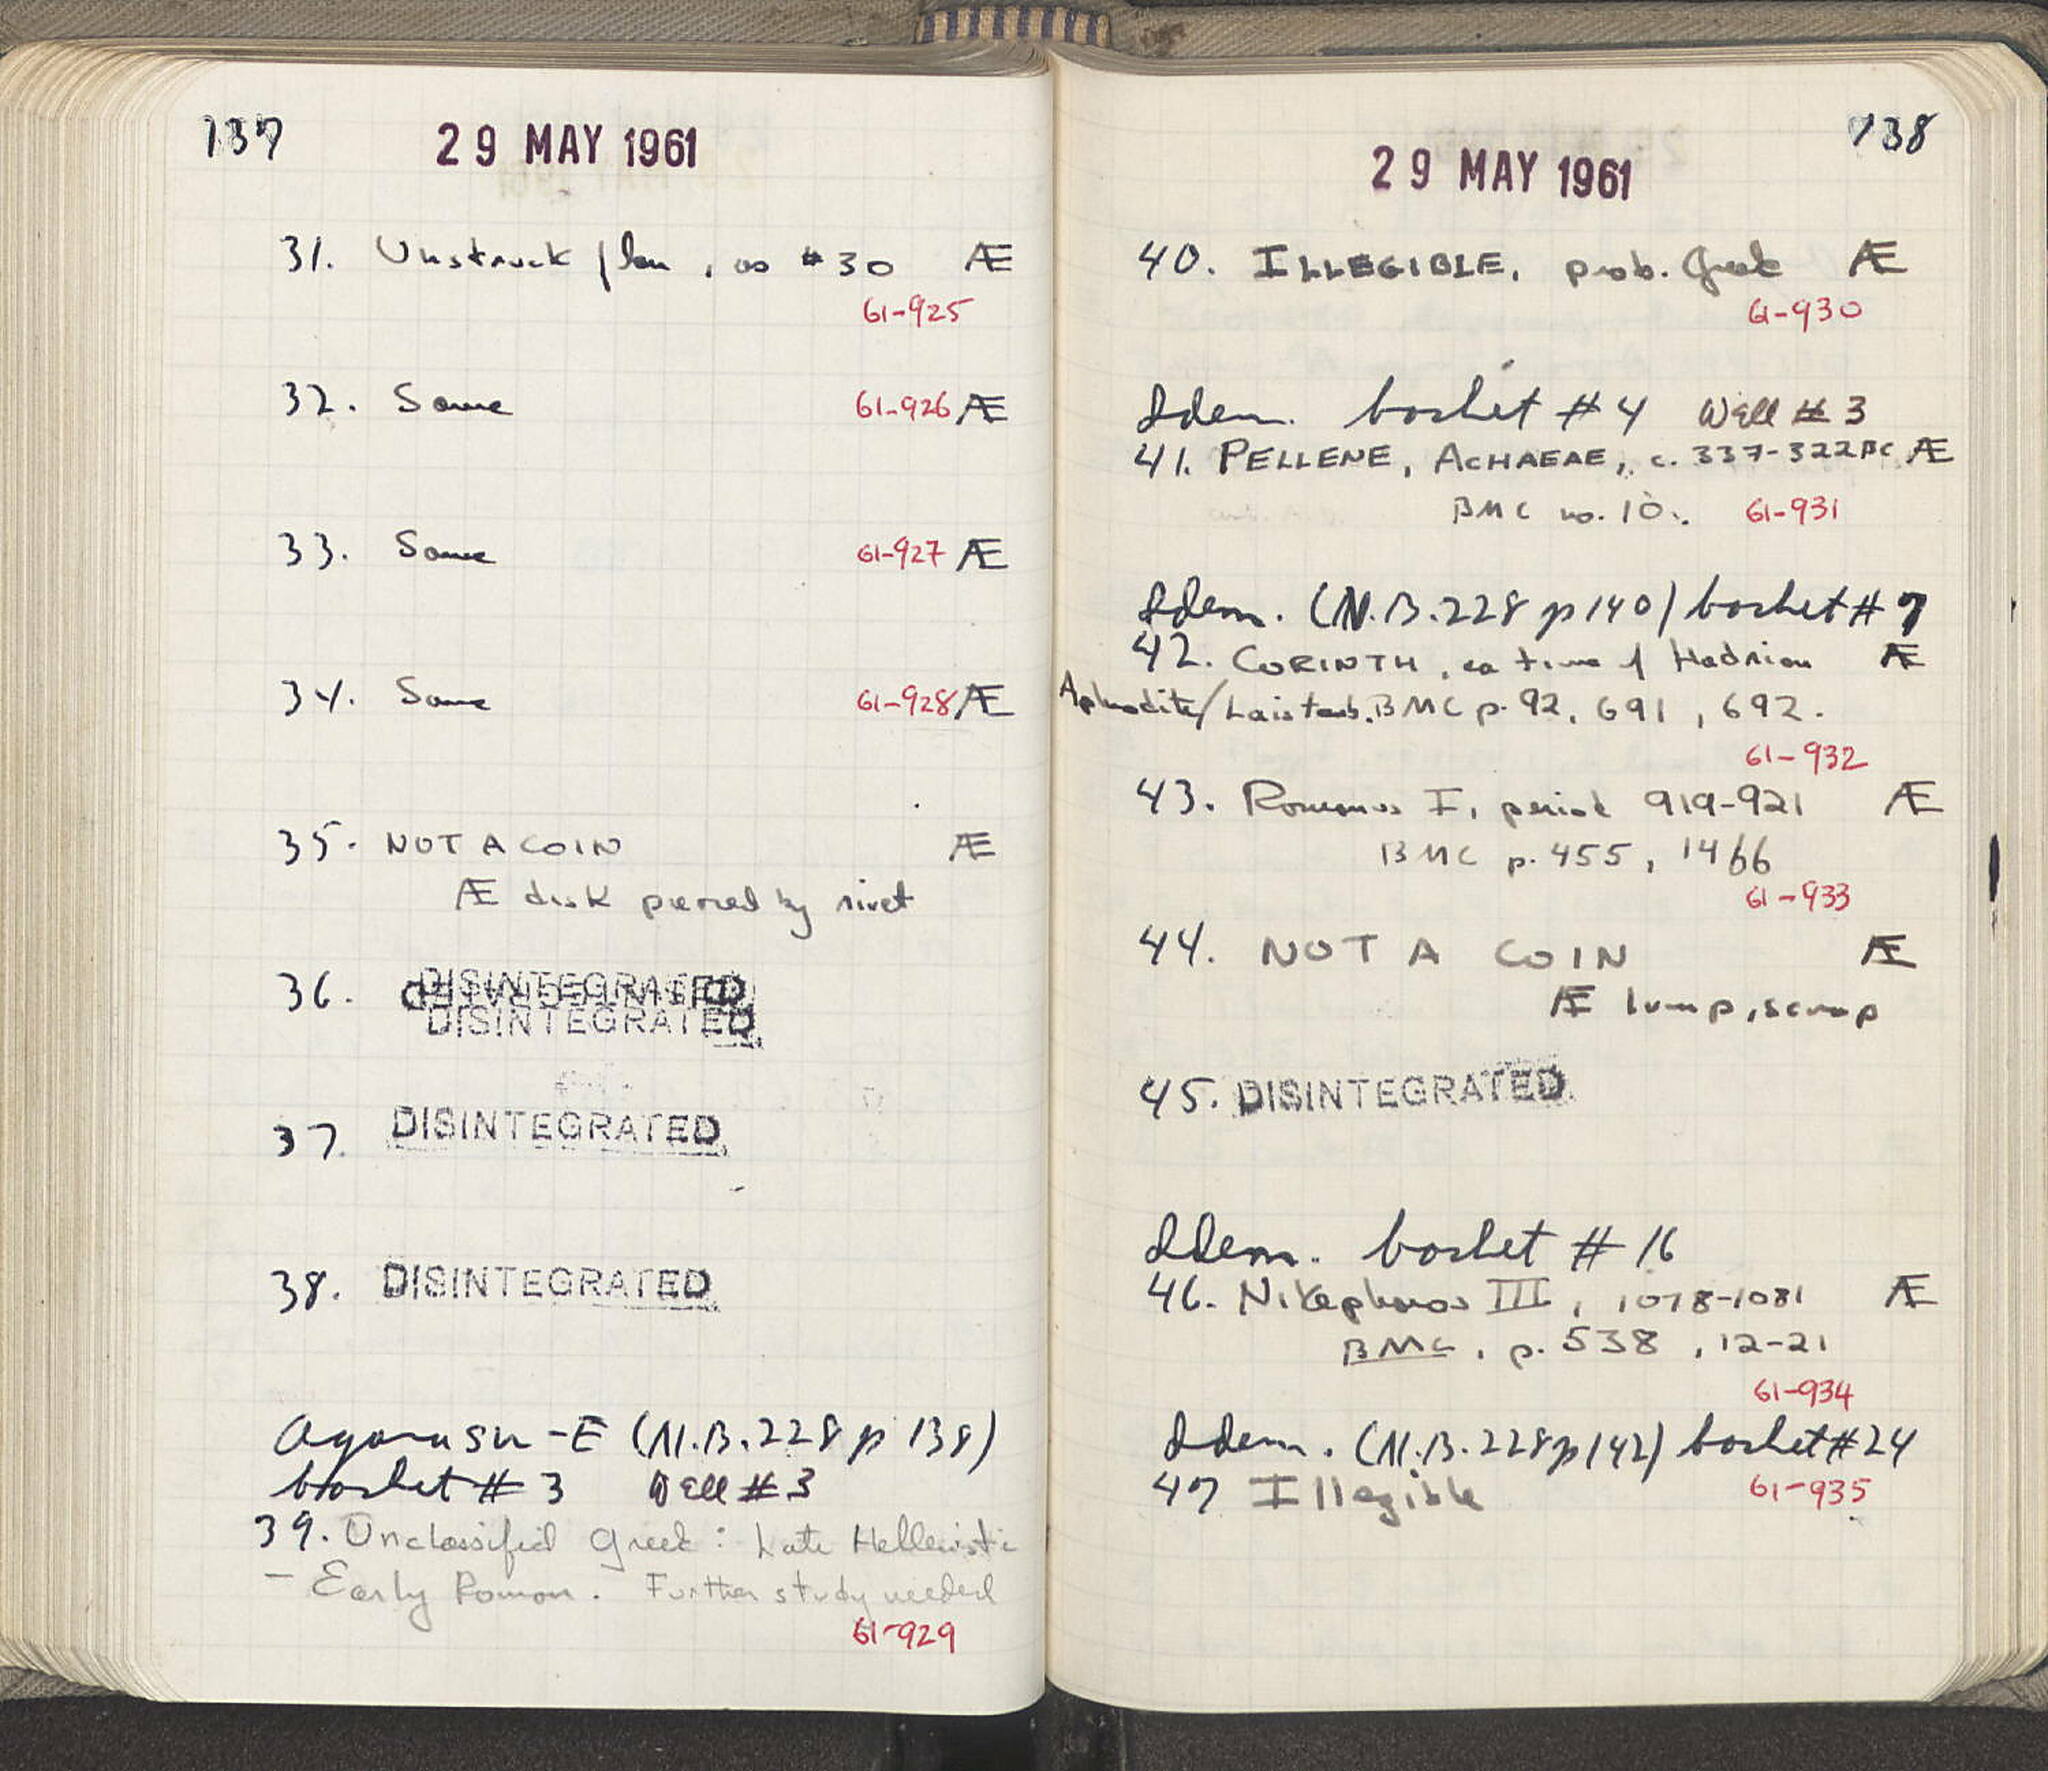 137
29 MAY 1961
31. Unstruck flan, as #30 Æ
61-925
32. Same 61-926 Æ
33. Same 61-927 Æ
34. Same 61-928 Æ
35. NOT A COIN Æ
Æ disk pierced by rivet
36. DISINTEGRATED
DISINTEGRATED
DISINTEGRATED
37. DISINTEGRATED
38. DISINTEGRATED
Agora SW-E (N.B. 228 p 138)
basket # 3 Well # 3
39. Unclassified Greek: Late Hellenistic
- Early Roman. Further study needed
61-929
138
29 MAY 1961
40. ILLEGIBLE, prob. Greek Æ
61-930
Idem. basket # 4 Well # 3
41. PELLENE, ACHAEAE, c. 337-322 BC Æ
BMC no. 10. 61-931
Idem. (N.B. 228 p 140) basket # 7
42. CORINTH, ca time of Hadrian Æ
Aphrodite/Lais tomb. BMC p. 92, 691, 692.
61-932
43. Romanus I, period 919-921 Æ
BMC p. 455, 1466
61-933
44. NOT A COIN Æ
Æ lump, scrap
45. DISINTEGRATED
Idem. basket # 16
46. Nikephoros III, 1078-1081 Æ
BMC, p. 538, 12-21
61-934
Idem. (N.B. 228 p 142) basket # 24
47 Illegible 61-935